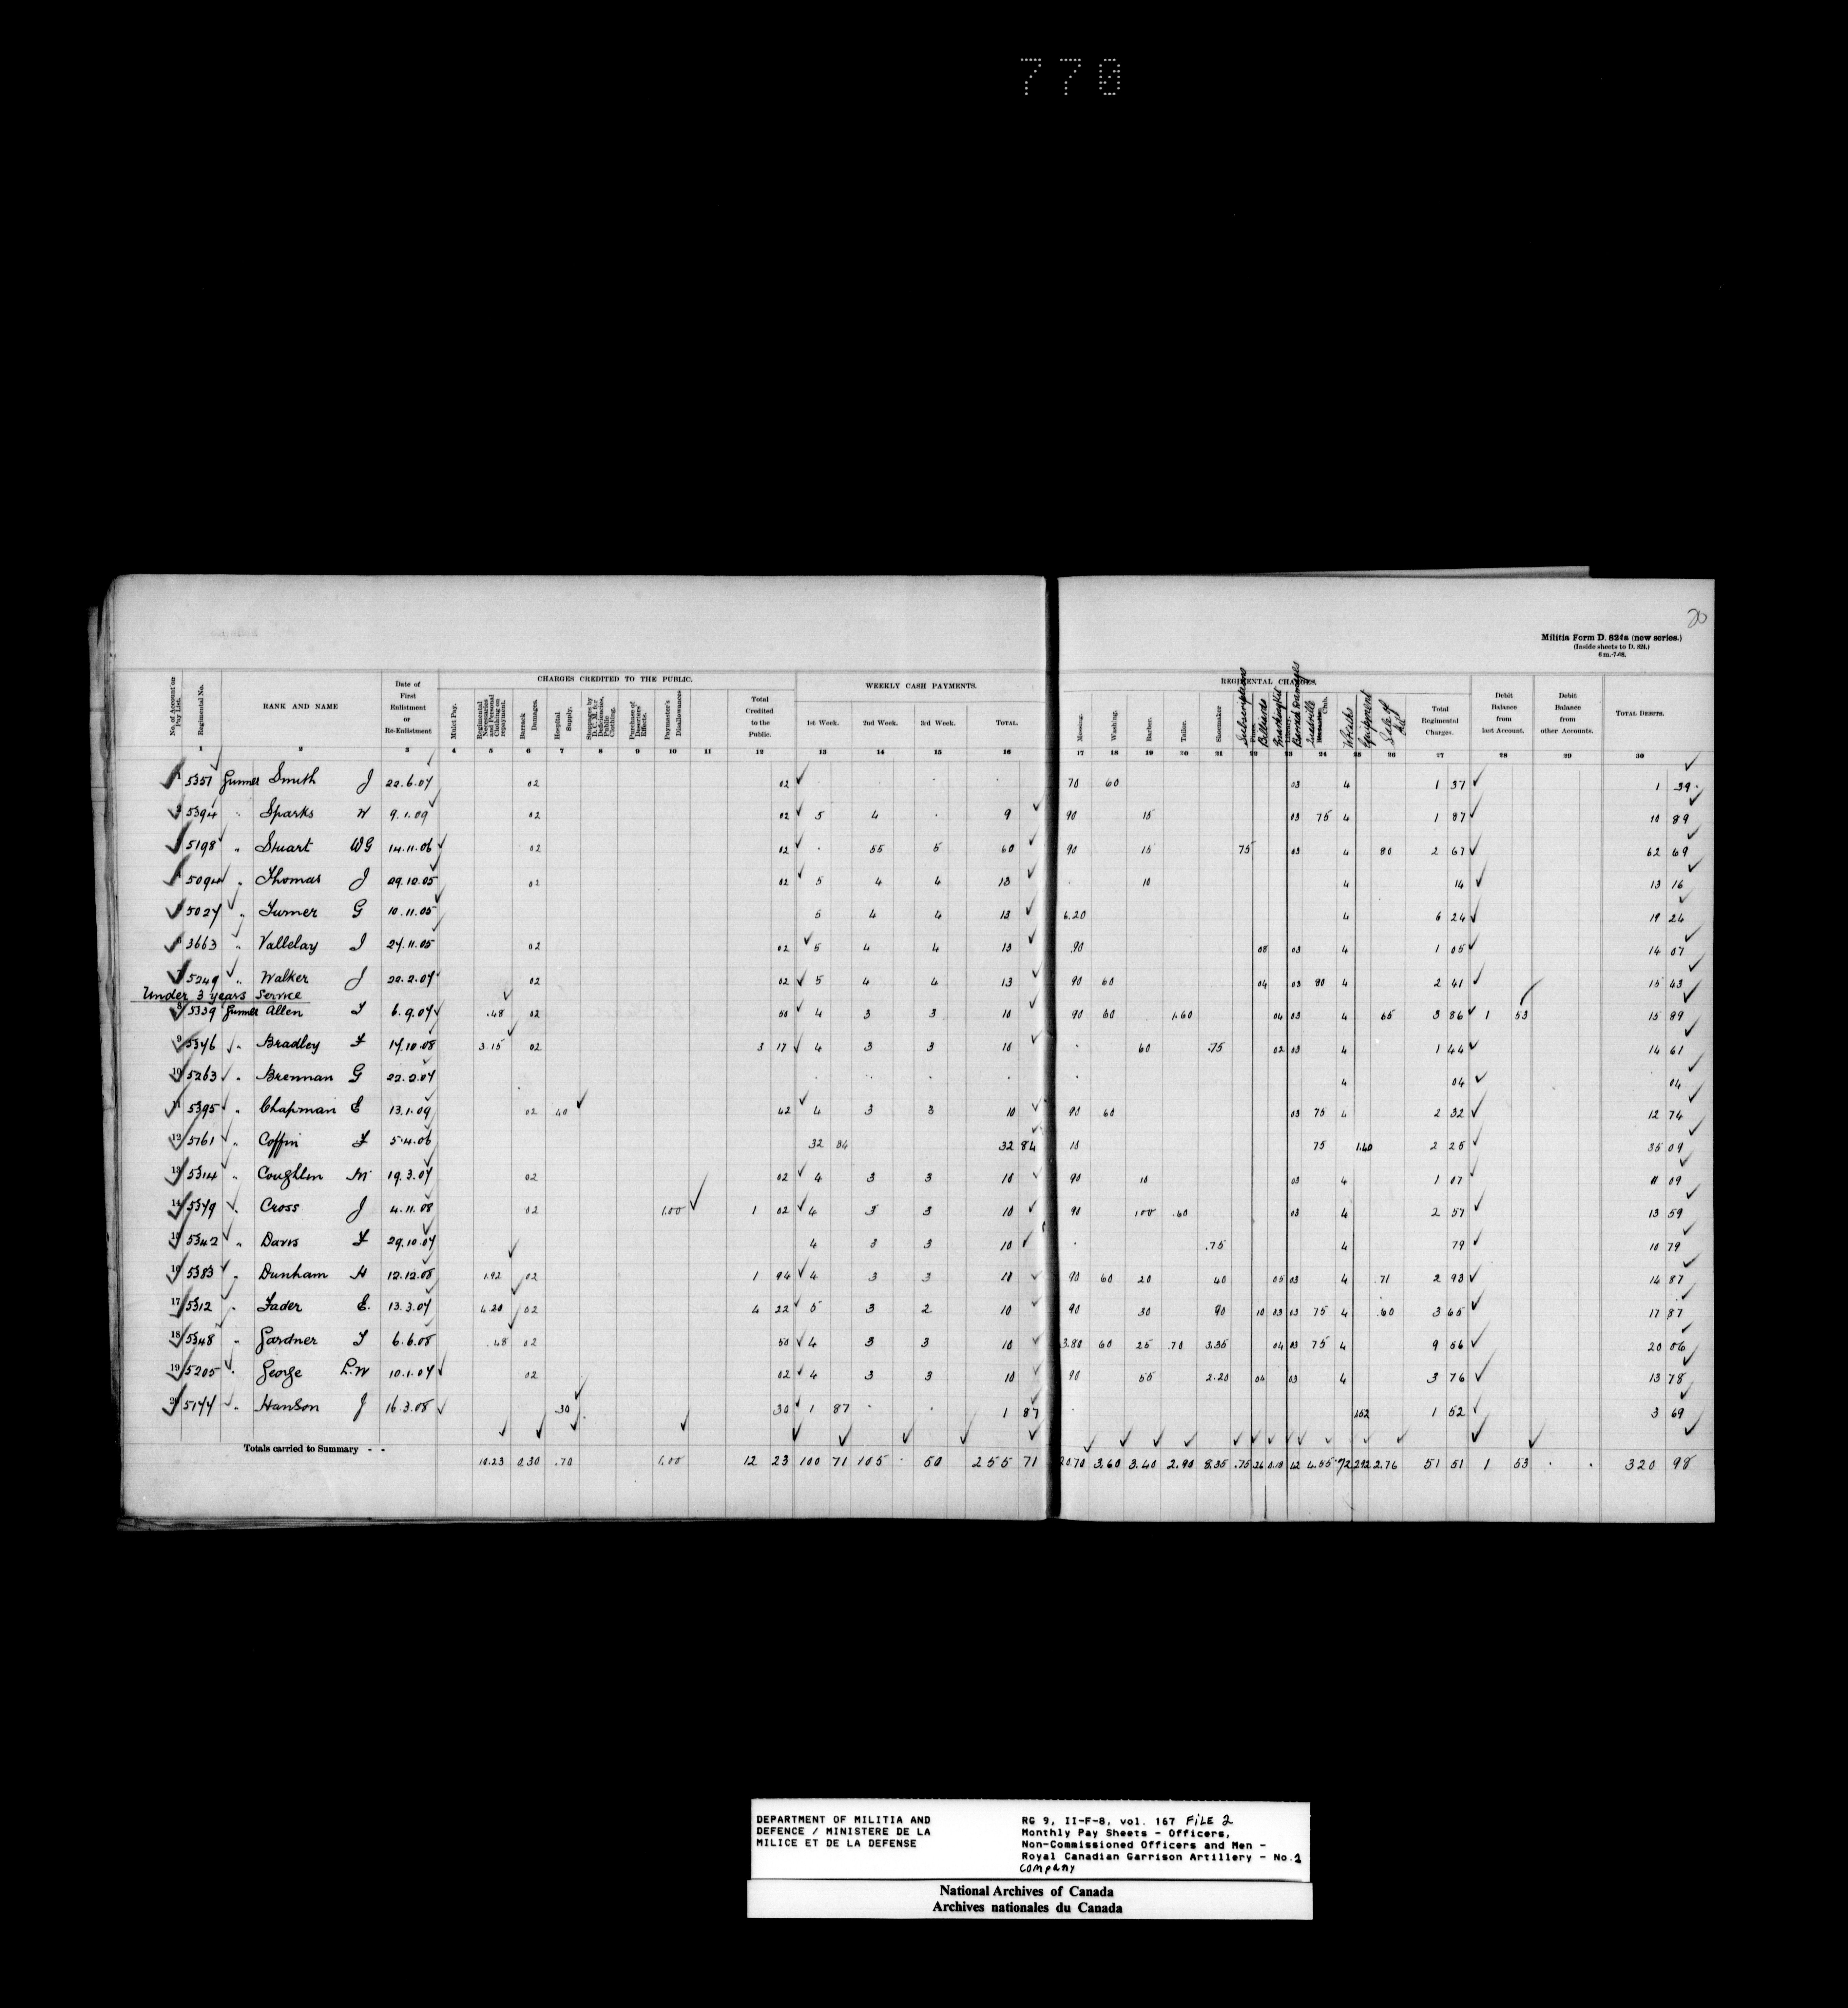 770
20
Militia Form D. 824a (new series.)
(Inside sheets to D. 824.)
6 m.-7-08.
CHARGES CREDITED TO THE PUBLIC. WEEKLY CASH PAYMENTS. REGIMENTAL CHARGES.
No. of Account on Pay List. Regimental No. RANK AND NAME Date of First Enlistment or Re-Enlistment Mulct Pay. Regimental Necessaries and Personal Clothing on repayment. Barrack Damages. Hospital Supply. Stoppages by Q.M. for Deficiencies, Public Clothing. Purchase of Deserters' Effects. Paymaster's Disallowances Total Credited to the Public. 1st Week. 2nd Week. 3rd Week. TOTAL. Messing. Washing. Barber. Tailor. Shoemaker Subscriptions Billiards Barrack Damages Club. Wheels Equipment Sale of Kit Total Regimental Charges. Debit Balance from last Account. Debit Balance from other Accounts. TOTAL DEBITS.
1 2 3 4 5 6 7 8 9 10 11 12 13 14 15 16 17 18 19 20 21 22 23 24 25 26 27 28 29 30
1 5357 Gunner Smith J 22.6.07 02 02 70 60 03 4 1 37 1 39
2 5394 " Sparks W 9.1.09 02 02 5 4 . 9 90 15 03 75 4 1 87 10 89
5198 " Stuart WG 14.11.06 02 02 . 55 5 60 90 15 75 03 4 80 2 67 62 69
5094 " Thomas J 29.12.05 02 02 5 4 4 13 . 10 4 14 13 16
5027 " Turner G 10.11.05 5 4 4 13 6.20 4 6 24 19 24
3663 " Vallelay J 27.11.05 02 02 5 4 4 13 .90 08 03 4 1 05 14 07
7 5249 " Walker J 20.2.07 02 02 5 4 4 13 90 60 04 03 80 4 2 41 15 43
Under 3 years Service
8 5339 Gunner Allen T 6.9.07 .48 02 50 4 3 3 10 90 60 1.60 04 03 4 65 3 86 1 53 15 89
9 5376 " Bradley F 17.10.08 3.15 02 3 17 4 3 3 10 . 60 .75 02 03 4 1 44 14 61
10 5263 " Brennan G 22.2.07 4 04 04
11 5395 " Chapman E 13.1.09 02 40 42 4 3 3 10 90 60 03 75 4 2 32 12 74
12 5161 " Coffin F 5.4.06 32 84 32 84 10 75 1.40 2 25 35 09
13 5314 " Coughlin M 19.3.07 02 02 4 3 3 10 90 10 03 4 1 07 11 09
14 5379 " Cross J 4.11.08 02 1.00 1 02 4 3 3 10 90 100 .60 03 4 2 57 13 59
15 5342 " Davis F 29.10.07 4 3 3 10 . .75 4 79 10 79
16 5383 " Dunham H 12.12.08 1.92 02 1 94 4 3 3 10 90 60 20 40 05 03 4 .71 2 93 14 87
17 5312 " Fader E. 13.3.07 4.20 02 4 22 5 3 2 10 90 30 90 10 03 03 75 4 .60 3 65 17 87
18 5348 " Gardner T 6.6.08 .48 02 50 4 3 3 10 3.80 60 25 .70 3.35 04 03 75 4 9 56 20 06
19 5205 " George L.W 10.1.07 02 02 4 3 3 10 90 55 2.20 04 03 4 3 76 13 78
20 5177 " Hanson J 16.3.08 .30 30 1 87 . . 1 87 . 152 1 52 3 69
Totals carried to Summary - - 10.23 0.30 .70 1.00 12 23 100 71 105 . 50 255 71 20.70 3.60 3.40 2.90 8.35 .75 26 0.18 42 4.55 72 2.92 2.76 51 51 1 53 . . 320 98
DEPARTMENT OF MILITIA AND
DEFENCE / MINISTERE DE LA
MILICE ET DE LA DEFENSE
RG 9, II-F-8, vol. 167 FILE 2
Monthly Pay Sheets - Officers,
Non-Commissioned Officers and Men -
Royal Canadian Garrison Artillery - No.1
company
National Archives of Canada
Archives nationales du Canada